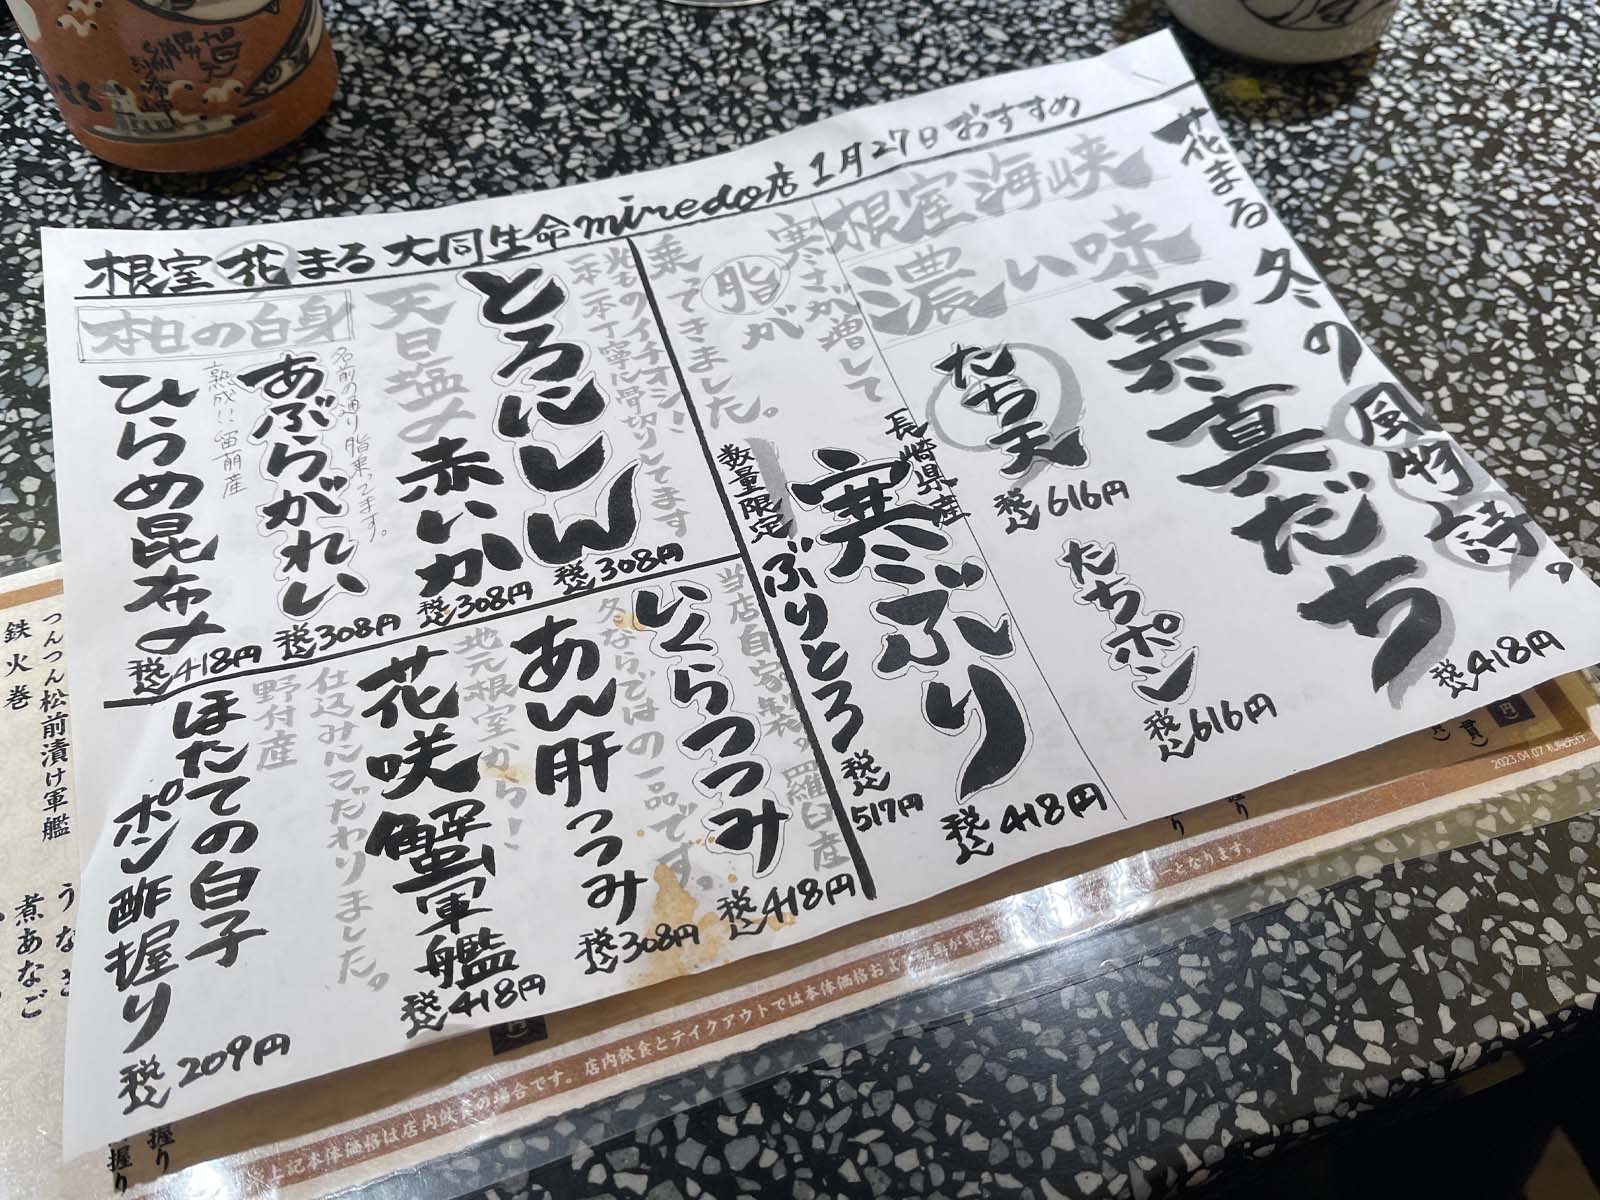 根室 花まる 大同生命miredo店 1月27日おすすめ
花まる 冬の風物詩。
寒真だち
税込418円
根室海峡
濃い味
たち天
税込616円
たちポン
税込616円
寒さが増して
脂が
乗ってきました。
長崎県産
寒ぶり
税込418円
数量限定
ぶりとろ
税込517円
光もののイチオシ!
一本一本丁寧に骨切りしてます
とろにしん
税込308円
天日塩〆
赤いか
税込308円
本日の白身
名前の通り脂乗ってます。
あぶらがれい
税込308円
熟成!!留萌産
ひらめ昆布〆
税込418円
当店自家製。羅臼産
いくらつつみ
税込418円
冬ならではの一品です。
あん肝つつみ
税込308円
地元根室から!
花咲蟹軍艦
税込418円
仕込みにこだわりました。
野付産
ほたての白子
ポン酢握り
税込209円
つんつん松前漬け軍艦
鉄火巻
うなぎ
煮あなご
握り
握り
上記本体価格は店内飲食の場合です。店内飲食とテイクアウトでは本体価格および
が異な
となります。
2023.04.07